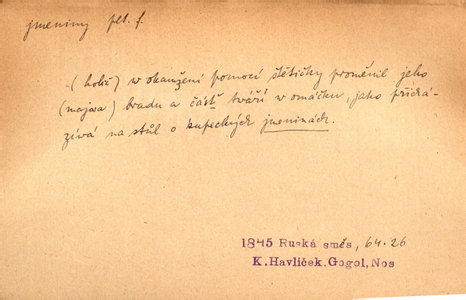 jmeniny plt. f.
(holič) v okamžení pomocí štětičky proměnil jeho
(majora) bradu a část tváří v omáčku, jako přichá-
zívá na stůl o kupeckých jmeninách.
1845 Ruská směs, 64.26
K. Havlíček. Gogol, Nos